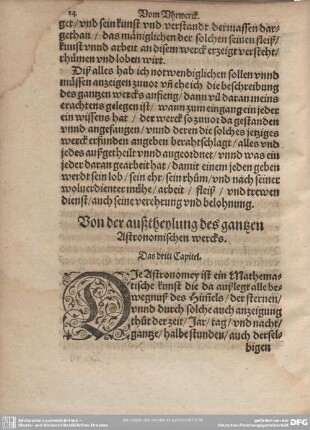 14. Vom Vhrwerck.
get/ vnd sein kunst vnd verstandt dermassen dar-
gethan/ das mäniglichen der solchen seinen fleiß/
kunst vnnd arbeit an disem werck erzeigt versteht/
rhümen vnd loben wirt.
Diß alles hab ich notwendiglichen sollen vnnd
müssen anzeigen zuuor vñ ehe ich die beschreibung
des gantzen wercks anfieng/ dann vil daran meins
erachtens gelegen ist/ wann zum eingang ein jeder
ein wissens hat/ der werck so zuuor da gestanden
vnnd angefangen/ vnnd deren die solches jetziges
werck erfunden angeben berahtschlagt/ alles vnd
jedes außgetheilt vnnd angeordnet/ vnnd was ein
jeder daran gearbeit hat/ damit einem jeden geben
werdt sein lob/ sein ehr/ sein rhüm/ vnd nach seiner
woluerdienter mühe/ arbeit/ fleiß/ vnd trewen
dienst/ auch seine verehrung vnd belohnung.
Von der außtheylung des gantzen
Astronomischen wercks.
Das driti Capitel.
DIe Astronomey ist ein Mathema-
tische kunst die da außlegt alle be-
wegnuß des Him̃els/ der sternen/
vnnd durch solche auch anzeigung
thüt der zeit/ Jar/ tag/ vnd nacht/
gantze/ halbe stunden/ auch dersel-
bigen